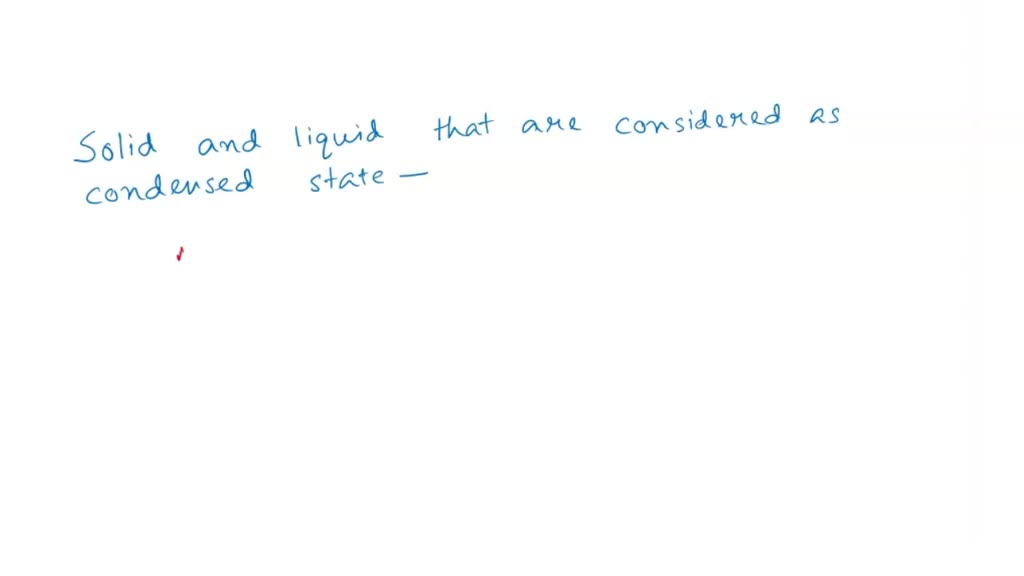 Solid and liquid that are considered as
condensed state —